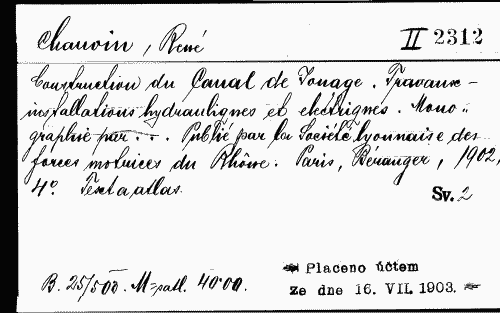 Chauvin, René II 2312
Construction du Canal de Jonage. Travaux -
installations hydrauliques et electriques. Mono =
graphie par . . . Publié par la Société lyonnaise des
forces motrices du Rhône. Paris, Béranger, 1902,
4°. Text a atlas. Sv. 2
Placeno účtem
B. 25/500. M= 40·00.
ze dne 16. VII. 1903.